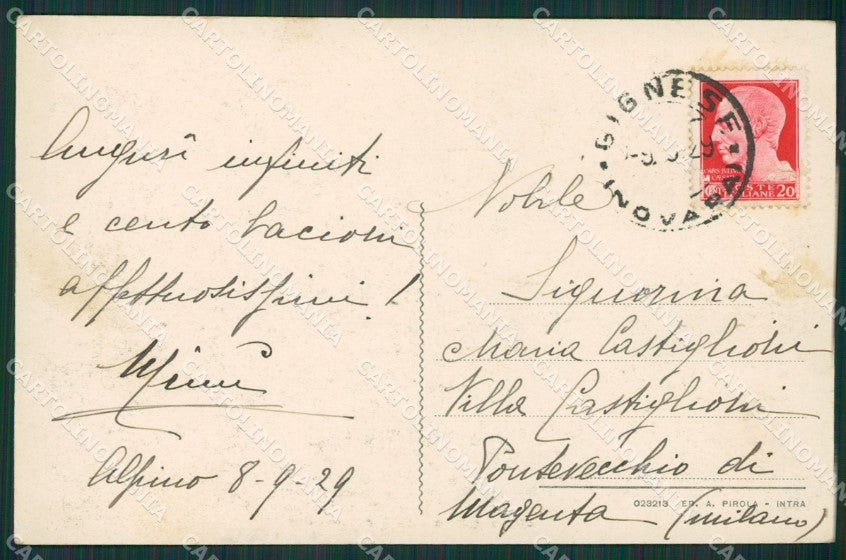 Auguri infiniti
e cento bacioni
affettuosissimi!
Mimì
Alpino 8-9-29
Nobile
Signorina
Maria Castiglioni
Villa Castiglioni
Pontevecchio di
Magenta (Milano)
GIGNESE
NOVARA
POSTE
ITALIANE 20
023213 ED. A. PIROLA - INTRA
CARTOLINOMANIA